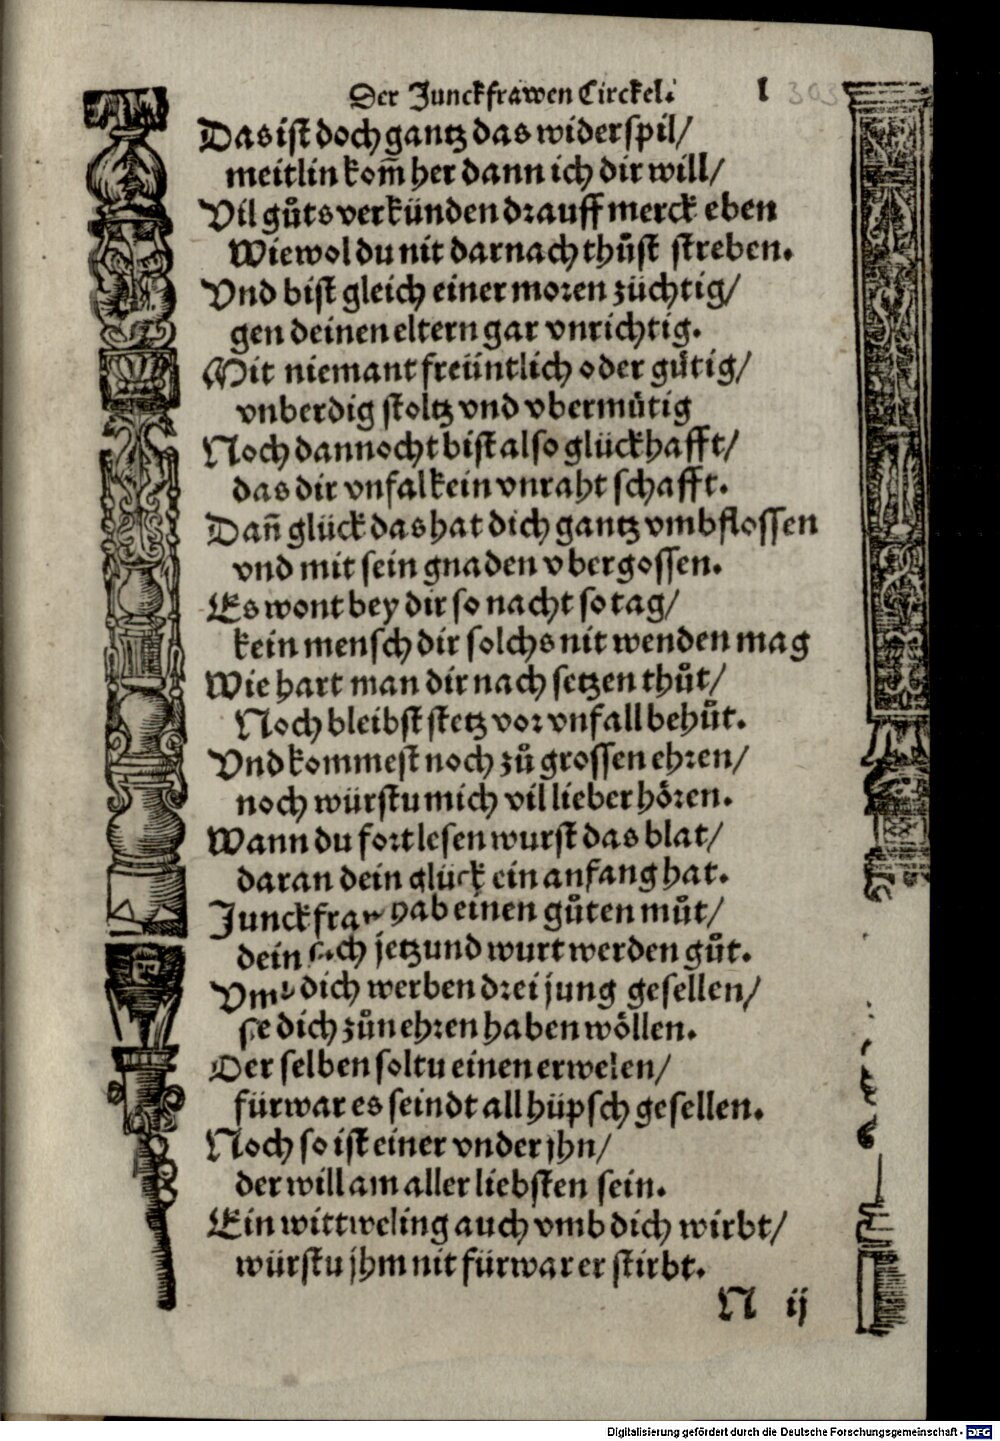 Der Junckfrawen Circkel. l 303
Das ist doch gantz das widerspil/
meitlin kom̄ her dann ich dir will/
Vil gůts verkünden drauff merck eben
Wiewol du nit darnach thůst streben.
Vnd bist gleich einer moren züchtig/
gen deinen eltern gar vnrichtig.
Mit niemant freüntlich oder gůtig/
vnberdig stoltz vnd vbermůtig
Noch dannocht bist also glückhafft/
das dir vnfal kein vnraht schafft.
Dan̄ glück das hat dich gantz vmbflossen
vnd mit sein gnaden vbergossen.
Es wont bey dir so nacht so tag/
kein mensch dir solchs nit wenden mag
Wie hart man dir nach setzen thůt/
Noch bleibst stetz vor vnfall behůt.
Vnd kommest noch zů grossen ehren/
noch würstu mich vil lieber hören.
Wann du fort lesen wurst das blat/
daran dein glück ein anfang hat.
Junckfraw hab einen gůten můt/
dein sach jetzund wurt werden gůt.
Vmb dich werben drei jung gesellen/
se dich zůn ehren haben wöllen.
Der selben soltu einen erwelen/
fürwar es seindt all hüpsch gesellen.
Noch so ist einer vnder jhn/
der will am aller liebsten sein.
Ein wittweling auch vmb dich wirbt/
würstu jhm nit fürwar er stirbt.
N ij
Digitalisierung gefördert durch die Deutsche Forschungsgemeinschaft - DFG